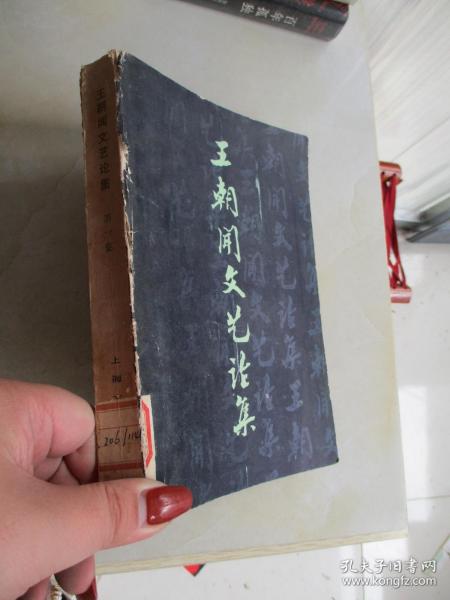 王朝闻文艺论集
王朝闻文艺论集
上海
206/114
百年孤独
孔夫子旧书网
www.kongfz.com